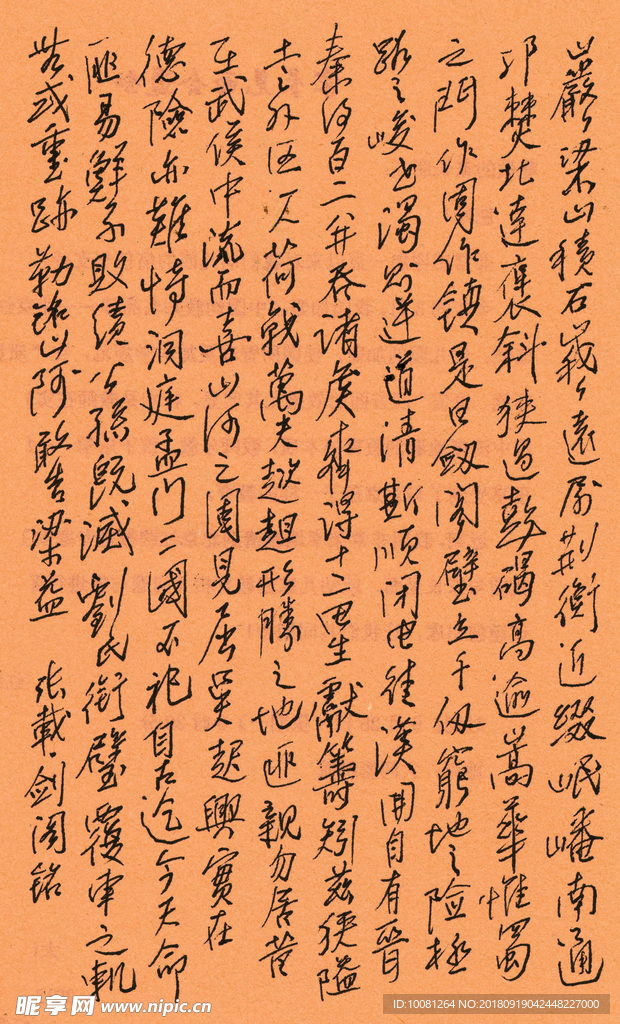 巖巖梁山積石峩峩遠屬荆衡近綴岷嶓南通
邛僰北達褒斜狹過彭碣高逾嵩華惟蜀
之門作固作鎮是曰劔閣壁立千仭窮地之險極
路之峻世濁則逆道清斯順閉由往漢開自有晉
秦得百二并吞諸侯齊得十二田生獻籌矧茲狹隘
土之外區一人荷戟萬夫趑趄形勝之地匪親勿居昔
在武侯中流而喜山河之固見屈吳起興實在
德險亦難恃洞庭孟門二國不祀自古迄今天命
匪易憑阻作昏鮮不敗績公孫既滅劉氏銜璧覆車之軌
無或重跡勒銘山阿敢告梁益 張載·剑阁铭
昵享网 www.nipic.cn
ID:10081264 NO:20180919042448227000